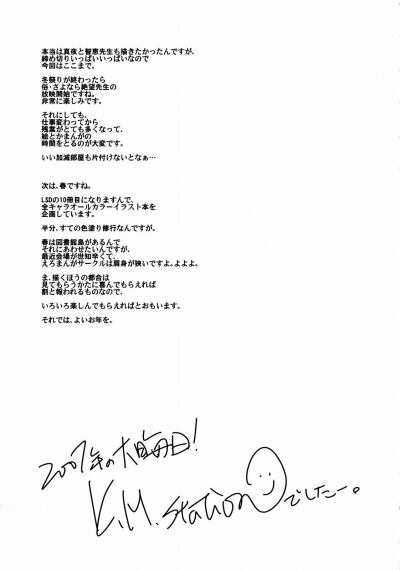 本当は真夜と智恵先生も描きたかったんですが、
締め切りいっぱいいっぱいなので
今回はここまで。
冬祭りが終わったら
俗・さよなら絶望先生の
放映開始ですね。
非常に楽しみです。
それにしても、
仕事変わってから
残業がとても多くなって、
絵とかまんがの
時間をとるのが大変です。
いい加減部屋も片付けないとなぁ…
次は、春ですね。
LSDの10冊目になりますんで、
全キャラオールカラーイラスト本を
企画しています。
半分、すての色塗り修行なんですが。
春は図書館島があるんで
それにあわせたいんですが、
最近会場が世知辛くて、
えろまんがサークルは肩身が狭いですよ。よよよ。
ま、描くほうの都合は
見てもらうかたに喜んでもらえれば
割と報われるものなので、
いろいろ楽しんでもらえればとおもいます。
それでは、よいお年を。
2007年の大晦日!
K.M. Station でしたー。